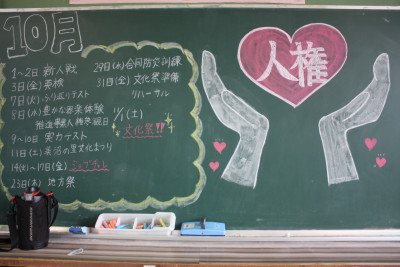 10月
1〜2日 新人戦
3日(金)英検
7日(火)ふり返りテスト
8日(水)豊かな音楽体験
9〜10日 実力テスト
11日(土)英活の里文化まつり
14(火)〜17日(金)ジョブチャレ
23日(木) 地方祭
29日(水)合同防災訓練
31日(金)文化祭準備
リハーサル
11/1(土)
文化祭!!
人権